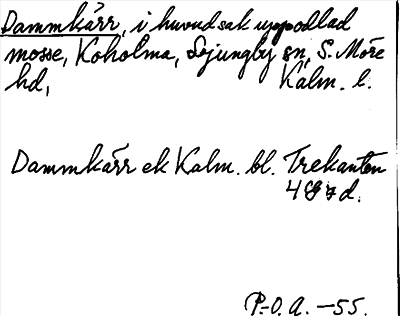 Dammkärr, i huvudsak uppodlad
mosse, Koholma, Ljungby sn, S. Möre
hd, Kalm. l.
Dammkärr ek Kalm. bl. Trekanten
4 g d.
P.-O. A. -55.